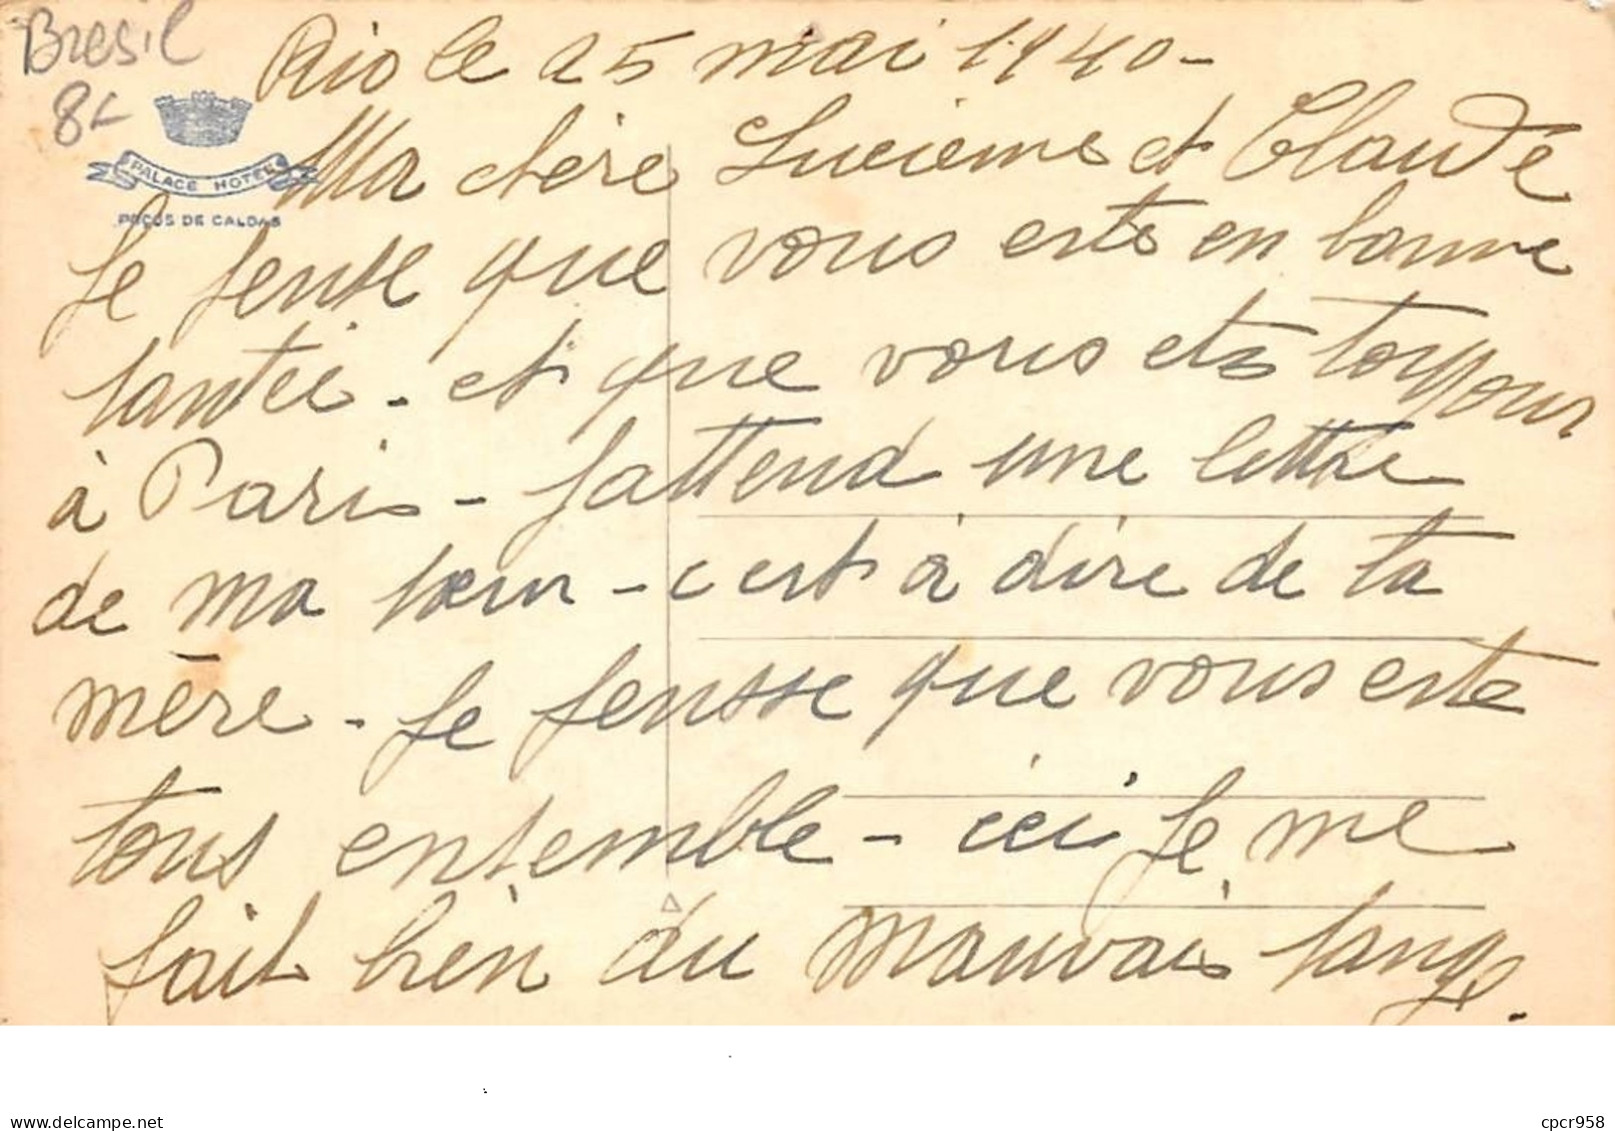 Bresil
8L
PALACE HOTEL
POÇOS DE CALDAS
Rio le 25 mai 1940-
Ma chère Lucienne et Claude
Je pense que vous ests en bonne
santée - et que vous ets toujour
à Paris - Jattend une lettre
de ma soeur - c'est à dire de ta
mère - Je pensse que vous este
tous ensemble - ici je me
fait bien du mauvais sang.
cpcr958
www.delcampe.net